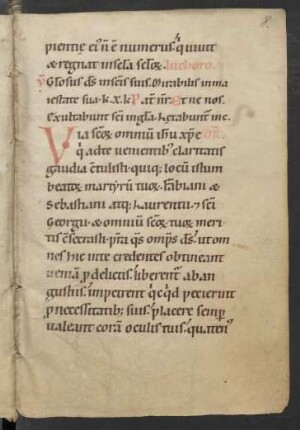 8
pientię ei' n̄ ē numerus. q̄ uiuit
& regnat in sęcla sęcloꝝ. In choro.
V Gl'osus ds̄ in sc̄is suis. Mirabilis in ma
iestate sua. k. x. k P at̄ nr̄. Et ne nos.
Exultabunt sc̄i in gl'a. Lętabunt̄ in c.
Via sc̄oꝝ omniū ih'u xp̄e
q̄ ad te uenientib; claritatis
gaudia c̄tulisti. quiq; locū istum
beatoꝝ martyrū tuoꝝ. Fabiani &
sebastiani atq; laurentii. ⁊ sc̄i
Georgii. & omniū sc̄oꝝ tuoꝝ meri
tis c̄secrasti. p̄sta q̄s omp̄s ds̄. ut om
nes hic in te credentes obtineant
ueniā p̄ delictis. liberent̄ ab an
gustiis. impetrent q̄cq̄d petierint
p̄ necessitatib; suis. placere semp̄
ualeant corā oculis tuis. quaten'